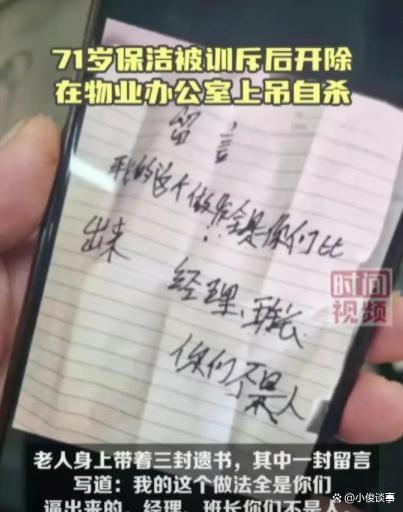 71岁保洁被训斥后开除
在物业办公室上吊自杀
留言
我的这个做法全是你们比
出来
经理、班长
你们不是人
时间
视频
老人身上带着三封遗书，其中一封留言
写道：我的这个做法全是你们
逼出来的，经理、班长你们不是人。
@小俊谈事